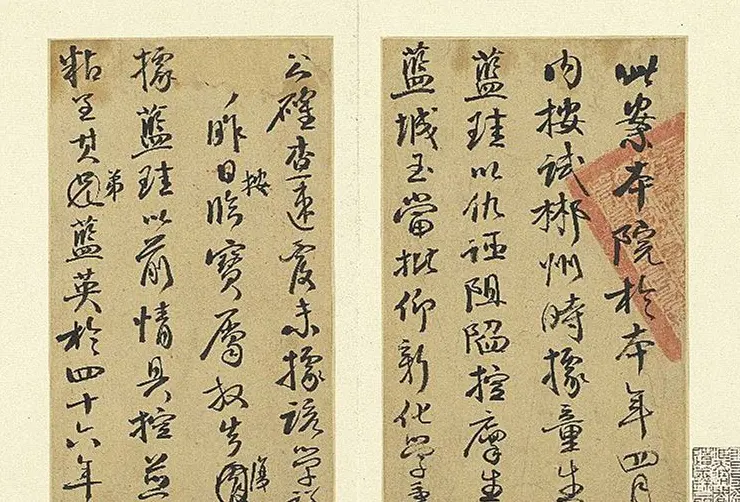 此案本院於本年四月
内按試郴州時據童生
藍珪以仇誣阻陷控廩生
藍城玉當批仰新化學
公確查速覆未據該學
昨日按臨寶屬放告復
據藍珪以前情具控並
粘呈其弟藍英於四十六年